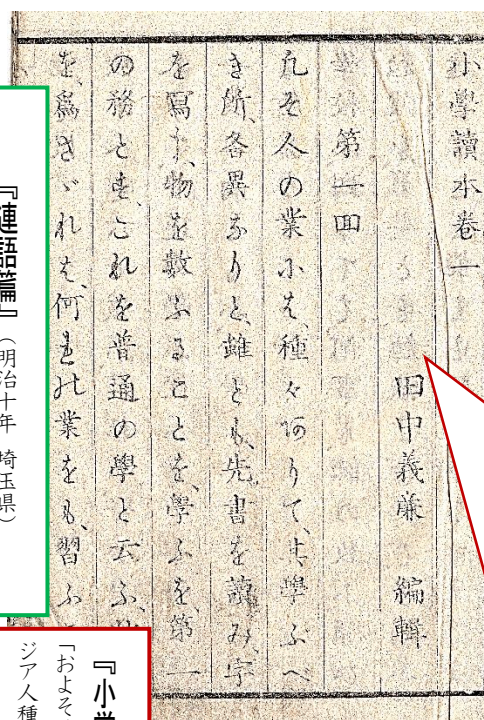 小學讀本卷一
田中義廉 編輯
第一回
凡そ人の業には種々ありて、其學ふべ
き所、各異なりと雖とも、先書を讀み、字
を寫し、物を數ふることを、學ふを、第一
の務とす、これを普通の學と云ふ、
を爲さゞれは、何れの業をも、習ふ
『連語篇』
（明治十年 埼玉県）
『小学
「およそ
ジア人種